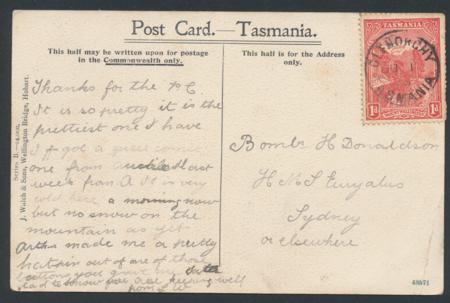 Post Card.—Tasmania.
This half may be written upon for postage
in the Commonwealth only.
This half is for the Address
only.
TASMANIA
1d 1d
GLENORCHY
TASMANIA
Series B.
J. Walch & Sons, Wellington Bridge, Hobart.
Thanks for the P.C.
It is so pretty it is the
prettiest one I have
I got a
one from last
week from A It is very
cold here a morning now
but no snow on the
mountain as yet
Arthur made me a pretty
hatpin out of one of those
buttons you gave me
glad to know you are keeping well
from
Bombr H Donaldson
H M S Euryalus
Sydney
or elsewhere
48571